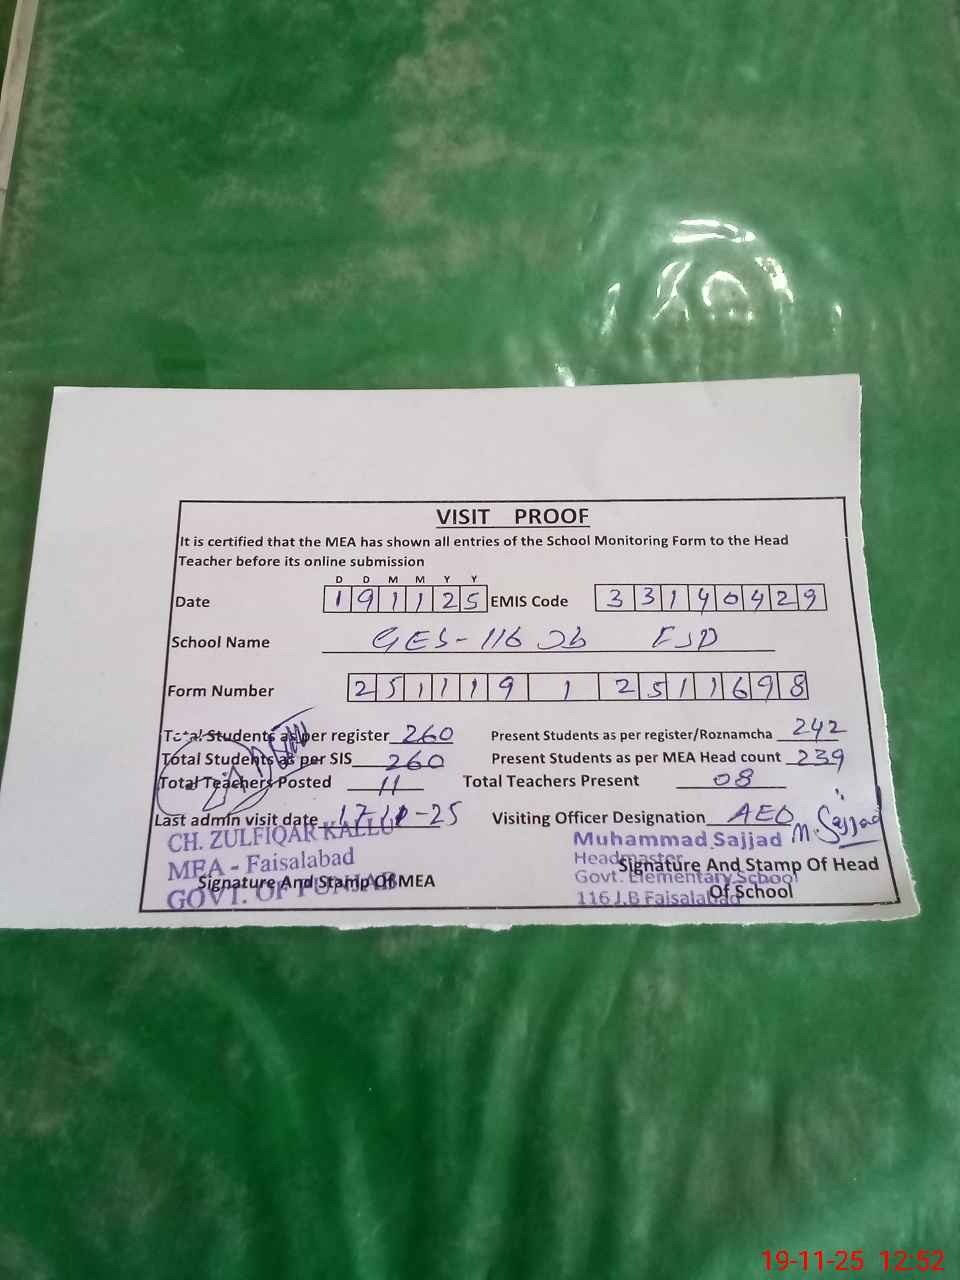 VISIT PROOF
It is certified that the MEA has shown all entries of the School Monitoring Form to the Head
Teacher before its online submission
D D M M Y Y
Date 1 9 1 1 2 5 EMIS Code 3 3 1 4 0 4 2 9
School Name GES-116 Jb FSD
Form Number 2 5 1 1 1 9 1 2 5 1 1 6 9 8
Total Students as per register 260 Present Students as per register/Roznamcha 242
Total Students as per SIS 260 Present Students as per MEA Head count 239
Total Teachers Posted 11 Total Teachers Present 08
Last admin visit date 17-11-25 Visiting Officer Designation AEO
M. Sajjad
CH. ZULFIQAR KALLU
MEA - Faisalabad
GOVT. OF PUNJAB
Signature And Stamp Of MEA
Muhammad Sajjad
Headmaster
Govt. Elementary School
116 J.B Faisalabad
Signature And Stamp Of Head
Of School
19-11-25 12:52